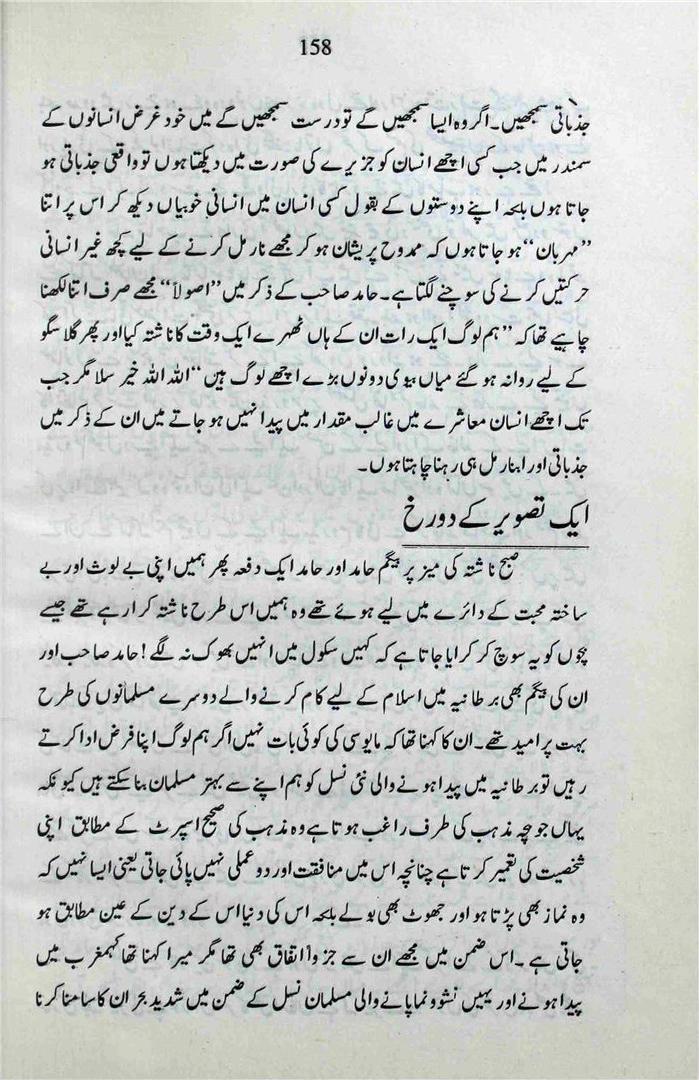 158
جذباتی سمجھیں۔ اگر وہ ایسا سمجھیں گے تو درست سمجھیں گے میں خود غرض انسانوں کے
سمندر میں جب کسی اچھے انسان کو جزیرے کی صورت میں دیکھتا ہوں تو واقعی جذباتی ہو
جاتا ہوں بلحہ اپنے دوستوں کے بقول کسی انسان میں انسانی خوبیاں دیکھ کر اس پر اتنا
’’مہربان‘‘ ہو جاتا ہوں کہ ممدوح پریشان ہو کر مجھے نارمل کرنے کے لیے کچھ غیر انسانی
حرکتیں کرنے کی سوچنے لگتا ہے۔ حامد صاحب کے ذکر میں ’’اصولاً‘‘ مجھے صرف اتنا لکھنا
چاہیے تھا کہ ’’ہم لوگ ایک رات ان کے ہاں ٹھہرے ایک وقت کا ناشتہ کیا اور پھر گلاسگو
کے لیے روانہ ہو گئے میاں بیوی دونوں بڑے اچھے لوگ ہیں‘‘ اللہ اللہ خیر سلا مگر جب
تک اچھے انسان معاشرے میں غالب مقدار میں پیدا نہیں ہو جاتے میں ان کے ذکر میں
جذباتی اور ابنارمل ہی رہنا چاہتا ہوں۔
ایک تصویر کے دو رخ
صبح ناشتہ کی میز پر بیگم حامد اور حامد ایک دفعہ پھر ہمیں اپنی بے لوث اور بے
ساختہ محبت کے دائرے میں لیے ہوئے تھے وہ ہمیں اس طرح ناشتہ کرا رہے تھے جیسے
بچوں کو یہ سوچ کر کرایا جاتا ہے کہ کہیں سکول میں انہیں بھوک نہ لگے! حامد صاحب اور
ان کی بیگم بھی برطانیہ میں اسلام کے لیے کام کرنے والے دوسرے مسلمانوں کی طرح
بہت پر امید تھے۔ ان کا کہنا تھا کہ مایوسی کی کوئی بات نہیں اگر ہم لوگ اپنا فرض ادا کرتے
رہیں تو برطانیہ میں پیدا ہونے والی نئی نسل کو ہم اپنے سے بہتر مسلمان بنا سکتے ہیں کیونکہ
یہاں جو بچہ مذہب کی طرف راغب ہوتا ہے وہ مذہب کی صحیح اسپرٹ کے مطابق اپنی
شخصیت کی تعمیر کرتا ہے چنانچہ اس میں منافقت اور دو عملی نہیں پائی جاتی یعنی ایسا نہیں کہ
وہ نماز بھی پڑتا ہو اور جھوٹ بھی بولے بلحہ اس کی دنیا اس کے دین کے عین مطابق ہو
جاتی ہے۔ اس ضمن میں مجھے ان سے جزواً اتفاق بھی تھا مگر میرا کہنا تھا کہ مغرب میں
پیدا ہونے اور یہیں نشوونما پانے والی مسلمان نسل کے ضمن میں شدید بحران کا سامنا کرنا